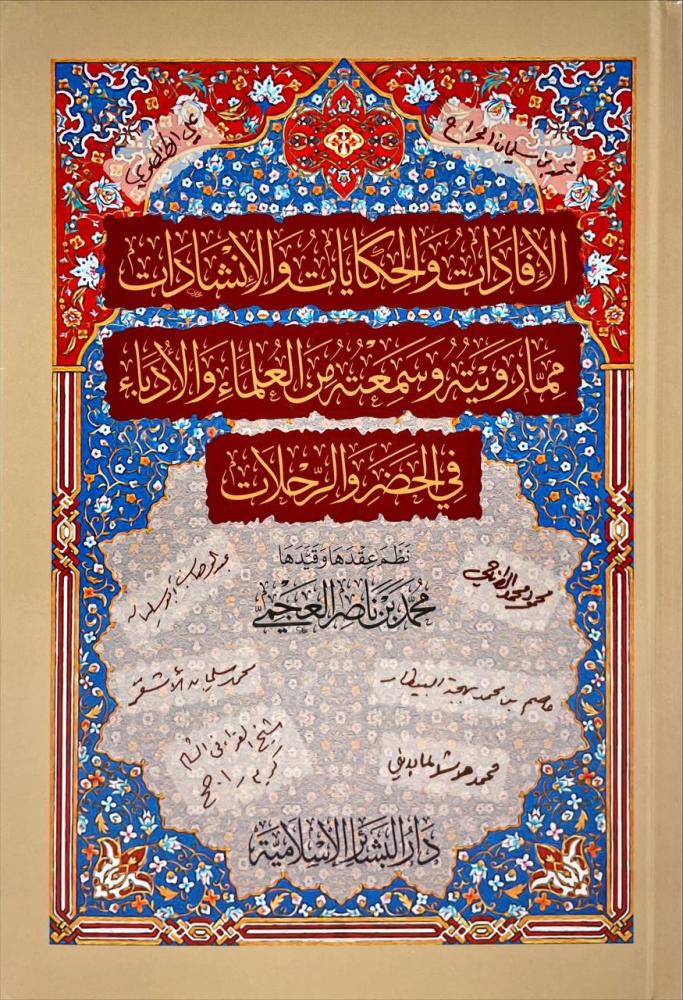 محمد بن سليمان الجراح
علي الطنطاوي
الإفادات والحكايات والإنشادات
مما رويته وسمعته من العلماء والأدباء
في الحضر والرحلات
نظم عقدها وقيدها
محمد بن ناصر العجمي
محمود محمد الطناحي
عبد الوهاب أبو سليمان
عاصم بن محمد بهجة البيطار
محمد سليمان الأشقر
شيخ القراء في الشام
كريم راجح
محمد
دار البشائر الإسلامية